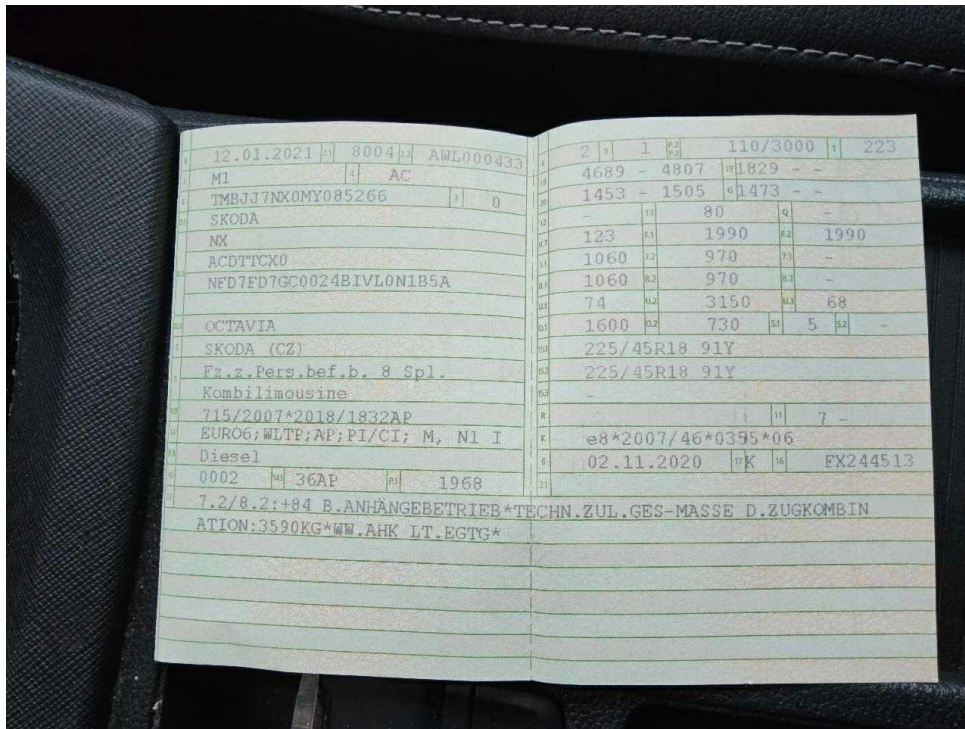 B 12.01.2021 2.1 8004 2.2 AWL000433
J M1 4 AC
E TMBJJ7NX0MY085266 3 0
D.1 SKODA
NX
D.2 ACDTTCX0
NFD7FD7GC0024BIVL0N1B5A
D.3 OCTAVIA
2 SKODA (CZ)
5 Fz.z.Pers.bef.b. 8 Spl.
Kombilimousine
V.9 715/2007*2018/1832AP
14 EURO6;WLTP;AP;PI/CI; M, N1 I
P.3 Diesel
10 0002 14.1 36AP P.1 1968
L 2 9 1 P.2 P.4 110/3000 T 223
18 4689 - 4807 19 1829 - -
20 1453 - 1505 G 1473 - -
12 - 13 80 Q -
V.7 123 F.1 1990 F.2 1990
7.1 1060 7.2 970 7.3 -
8.1 1060 8.2 970 8.3 -
U.1 74 U.2 3150 U.3 68
O.1 1600 O.2 730 S.1 5 S.2 -
15.1 225/45R18 91Y
15.2 225/45R18 91Y
15.3 -
R 11 7 -
K e8*2007/46*0395*06
6 02.11.2020 17 K 16 FX244513
21
22 7.2/8.2:+84 B.ANHÄNGEBETRIEB*TECHN.ZUL.GES-MASSE D.ZUGKOMBIN
ATION:3590KG*WW.AHK LT.EGTG*